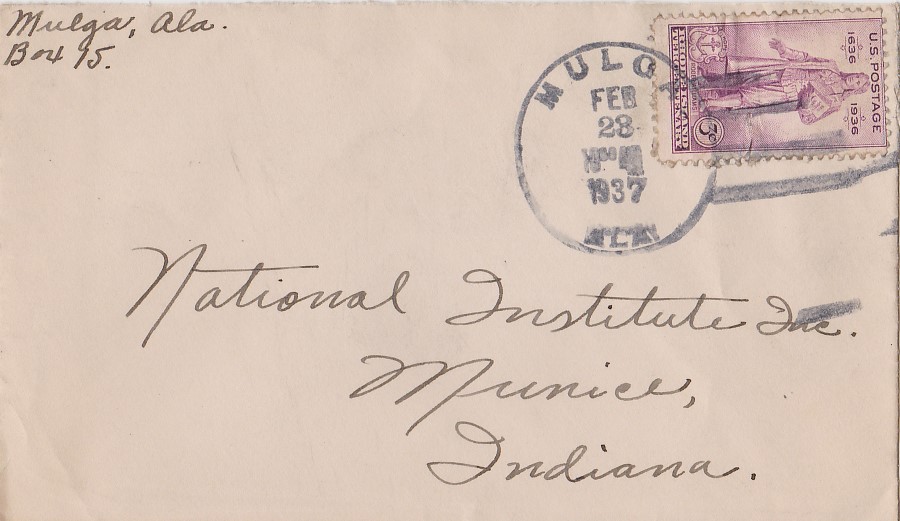 Mulga, Ala.
Box 95.
MULGA
FEB
28
1937
ALA.
U.S. POSTAGE
1636 1936
3¢
RHODE ISLAND
TERCENTENARY
National Institute Inc.
Munice,
Indiana.